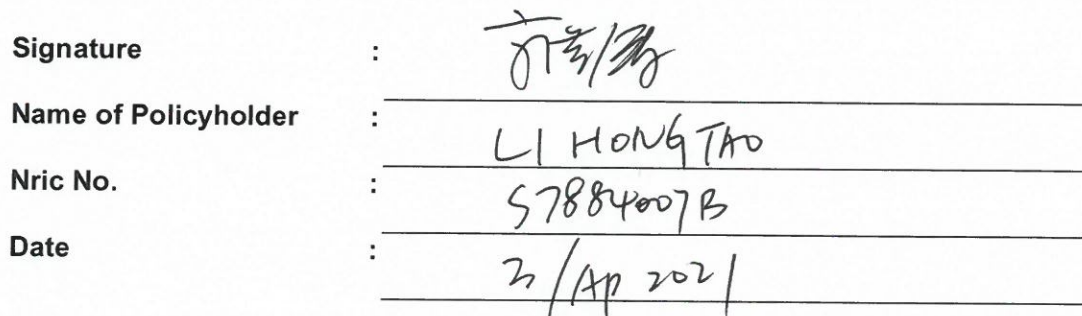 Signature :
Name of Policyholder : LI HONG TAO
Nric No. : S7884007B
Date : /Ap 2021